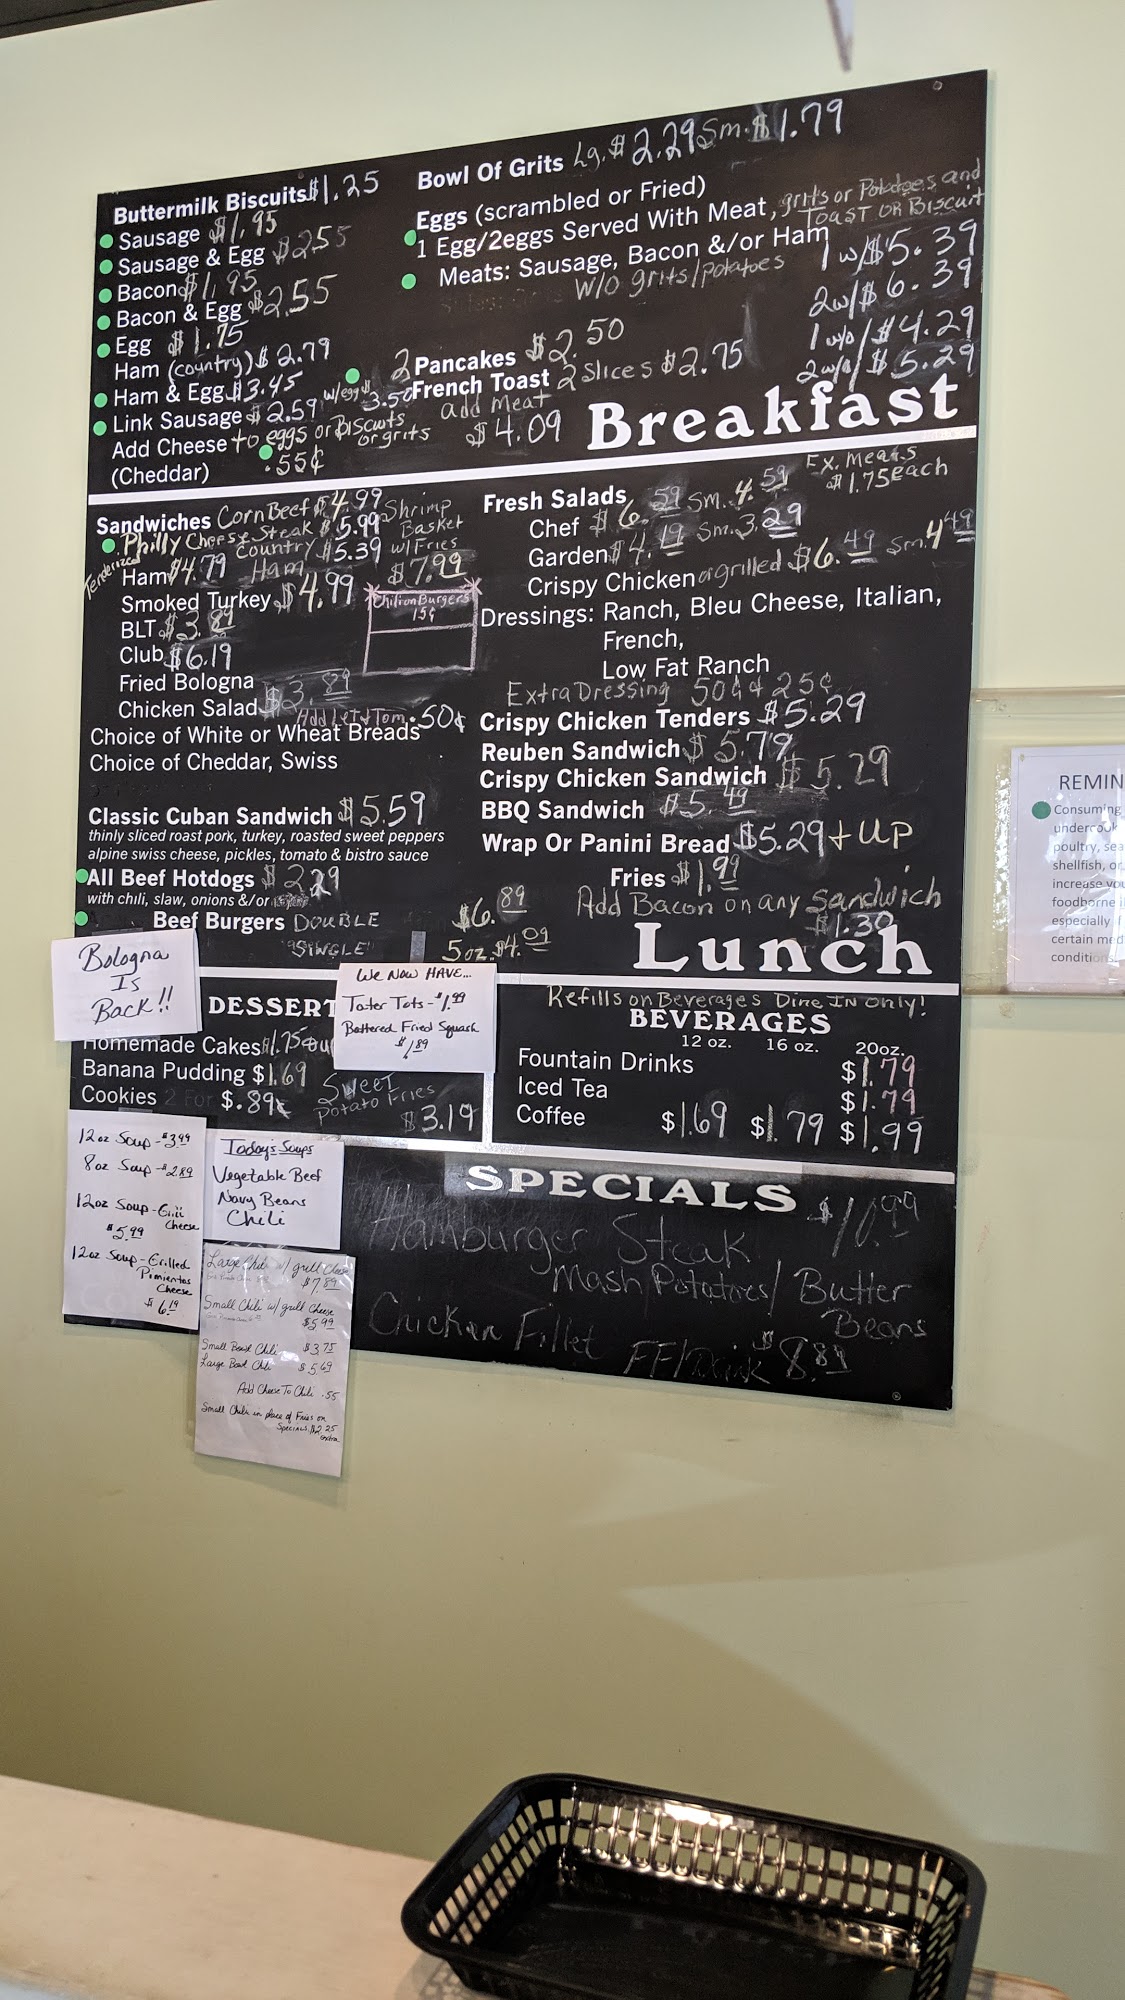 Buttermilk Biscuits $1.25
Sausage $1.95
Sausage & Egg $2.55
Bacon $1.95
Bacon & Egg $2.55
Egg $1.75
Ham (country) $2.79
Ham & Egg $3.45
Link Sausage $2.59 w/egg $3.50
Add Cheese to eggs or Biscuits or grits
(Cheddar) .55¢
Bowl Of Grits Lg. $2.29 Sm. $1.79
Eggs (scrambled or Fried)
1 Egg/2eggs Served With Meat, grits or Potatoes and
Toast or Biscuit
Meats: Sausage, Bacon &/or Ham
W/o grits/potatoes
1 w/ $5.39
2 w/ $6.39
1 w/o/ $4.29
2 w/o/ $5.29
2 Pancakes $2.50
French Toast 2 Slices $2.75
add Meat
$4.09
Breakfast
Ex. Meats
$1.75 each
Sandwiches Corn Beef $4.99
Philly Cheese Steak $5.99
Tenderized
Country Ham $5.39
Shrimp
Basket
w/Fries
$7.99
Ham $4.79
Smoked Turkey $4.99
BLT $3.89
Club $6.19
Fried Bologna
Chicken Salad $3.89
Add Let & Tom. .50¢
Chili on Burgers
15¢
Choice of White or Wheat Breads
Choice of Cheddar, Swiss
Classic Cuban Sandwich $5.59
thinly sliced roast pork, turkey, roasted sweet peppers
alpine swiss cheese, pickles, tomato & bistro sauce
All Beef Hotdogs $2.29
with chili, slaw, onions &/or
Beef Burgers DOUBLE $6.89
"SINGLE" 5oz. $4.09
Fresh Salads
Chef $6.59 Sm. 4.59
Garden $4.19 Sm. 3.29
Crispy Chicken or grilled $6.49 Sm. 4.49
Dressings: Ranch, Bleu Cheese, Italian,
French,
Low Fat Ranch
Extra Dressing 50¢ & 25¢
Crispy Chicken Tenders $5.29
Reuben Sandwich $5.79
Crispy Chicken Sandwich $5.29
BBQ Sandwich $5.49
Wrap Or Panini Bread $5.29 + UP
Fries $1.99
Add Bacon on any Sandwich
$1.30
Lunch
Bologna
Is
Back!!
We Now Have...
Tater Tots - $1.99
Battered Fried Squash
$1.89
DESSERT
Homemade Cakes $1.75
Banana Pudding $1.69
Cookies 2 For $.89¢
Sweet
Potato Fries
$3.19
Refills on Beverages Dine In only!
BEVERAGES
12 oz. 16 oz. 20oz.
Fountain Drinks $1.79
Iced Tea $1.79
Coffee $1.69 $1.79 $1.99
12oz Soup - $3.99
8oz Soup - $2.89
12oz Soup - Grill
Cheese
$5.99
12oz Soup - Grilled
Pimientos
Cheese
$6.19
Today's Soups
Vegetable Beef
Navy Beans
Chili
Large Chili w/ grill Cheese
$7.89
Small Chili w/ grill Cheese
$5.99
Small Bowl Chili $3.75
Large Bowl Chili $5.69
Add Cheese To Chili .55
Small Chili in place of Fries on
Specials. $2.25
extra
SPECIALS
Hamburger Steak $10.99
Mash Potatoes/ Butter
Beans
Chicken Fillet FF/Drink $8.89
REMIN
Consuming
undercook
poultry, sea
shellfish, or
increase you
foodborne i
especially if
certain med
conditions.